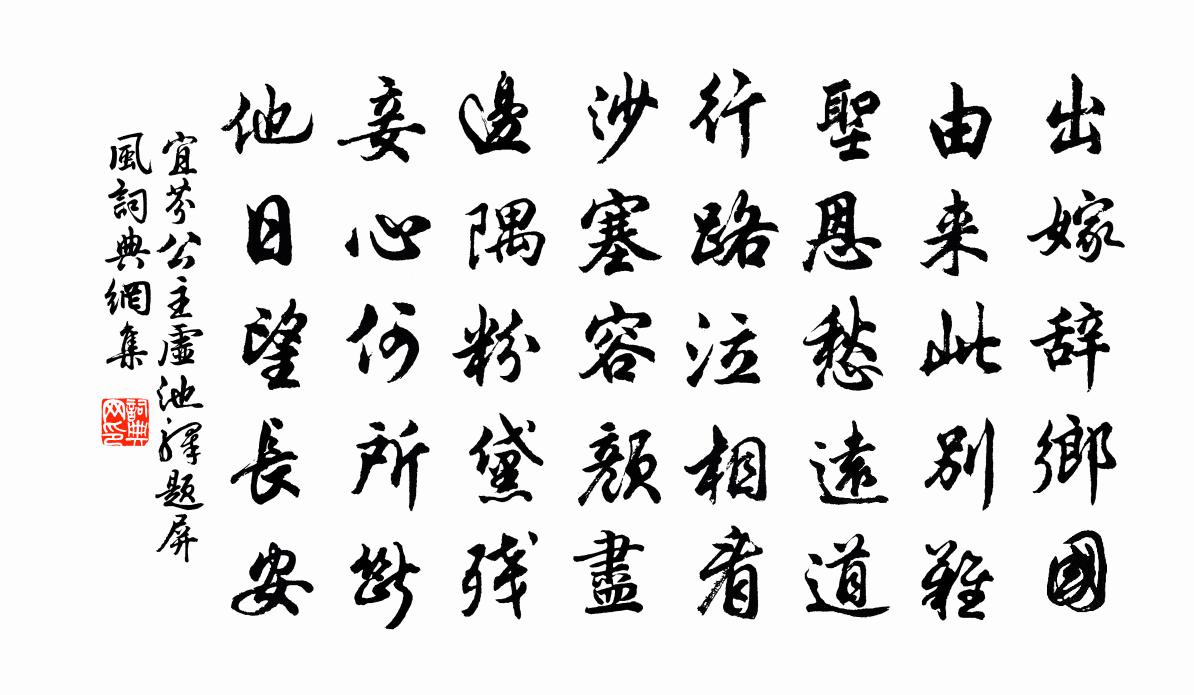 出嫁辞鄉國
由来此别難
聖恩愁遠道
行路泣相看
沙塞容顔盡
邊隅粉黛残
妾心何所斷
他日望長安
宜芬公主虛池驛題屏
風詞典網集
詞典
网印